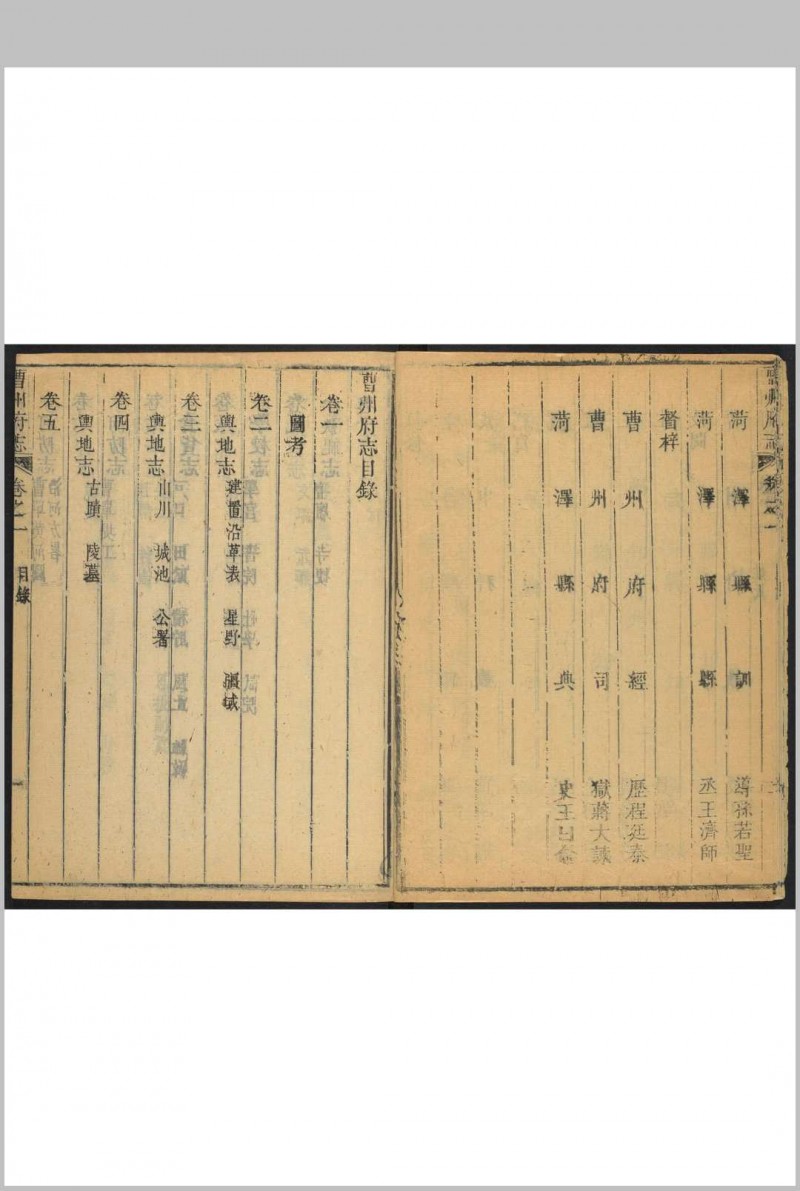 曹州府志
菏澤縣訓導孫若聖
菏澤縣縣丞王濟師
督梓
曹州府經歷程廷泰
曹州府司獄蔣大諴
菏澤縣典史王日
曹州府志目錄
卷一
圖考
卷二
輿地志 建置沿革表 星野 疆域
卷三
輿地志 山川 城池 公署
卷四
輿地志 古蹟 陵墓
卷五
曹州府志 卷之一 目錄 一